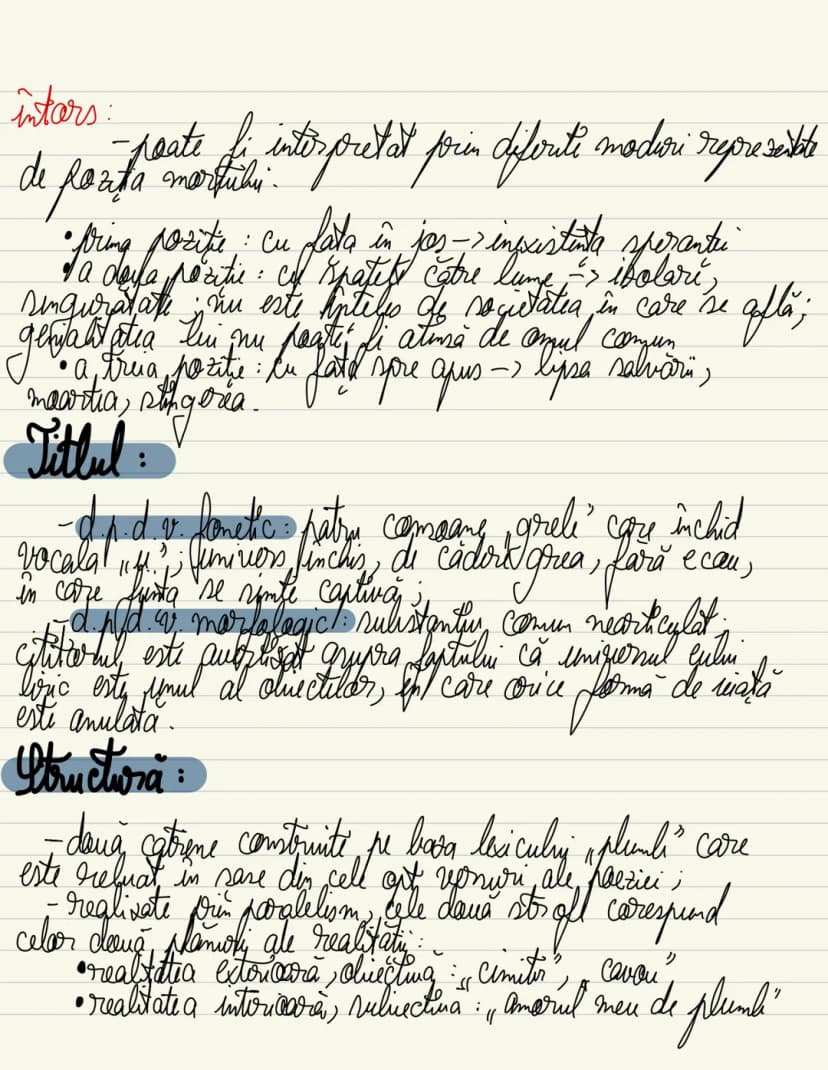 întors:
-poate fi interpretat prin diferite moduri reprezentate
de poziția mortului.
•prima poziție: cu fața în jos -> inexistența speranței
•a doua poziție: cu spatele către lume -> izolare,
singurătate; nu este înțeles de societatea în care se află;
genialitatea lui nu poate fi atinsă de omul comun
•a treia poziție: cu fața spre apus -> lipsa salvării,
moartea, stingerea.
Titlul:
-d.p.d.v. fonetic: patru consoane „grele” care închid
vocala „u”; univers închis, de cădere grea, fără ecou,
în care ființa se simte captivă;
-d.p.d.v. morfologic: substantiv comun nearticulat;
cititorul este avertizat asupra faptului că universul eului
liric este unul al obiectelor, în care orice formă de viață
este anulată.
Structură:
-două catrene construite pe baza lexicului „plumb” care
este reluat în șase din cele opt versuri ale poeziei;
-realizate prin paralelism, cele două strofe corespund
celor două planuri ale realității:
•realitatea exterioară, obiectivă: „cimitir”, „cavou”
•realitatea interioară, subiectivă: „amorul meu de plumb”